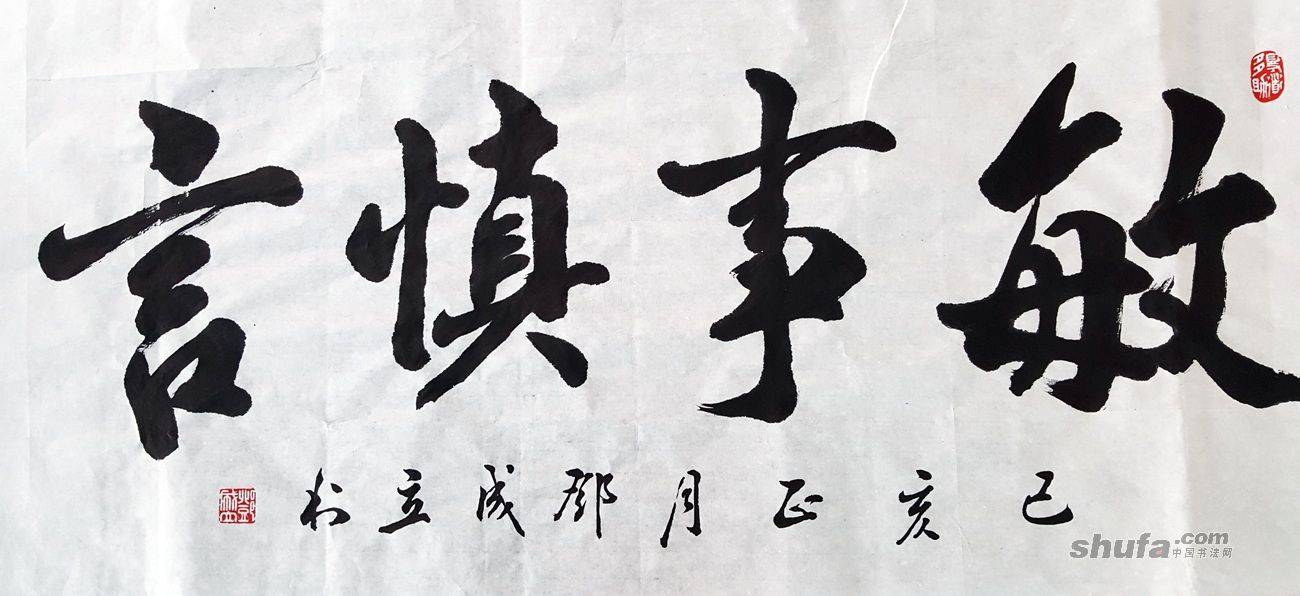 敏事慎言
己亥正月鄧成立书
得道多助
shufa.com
中国书法网